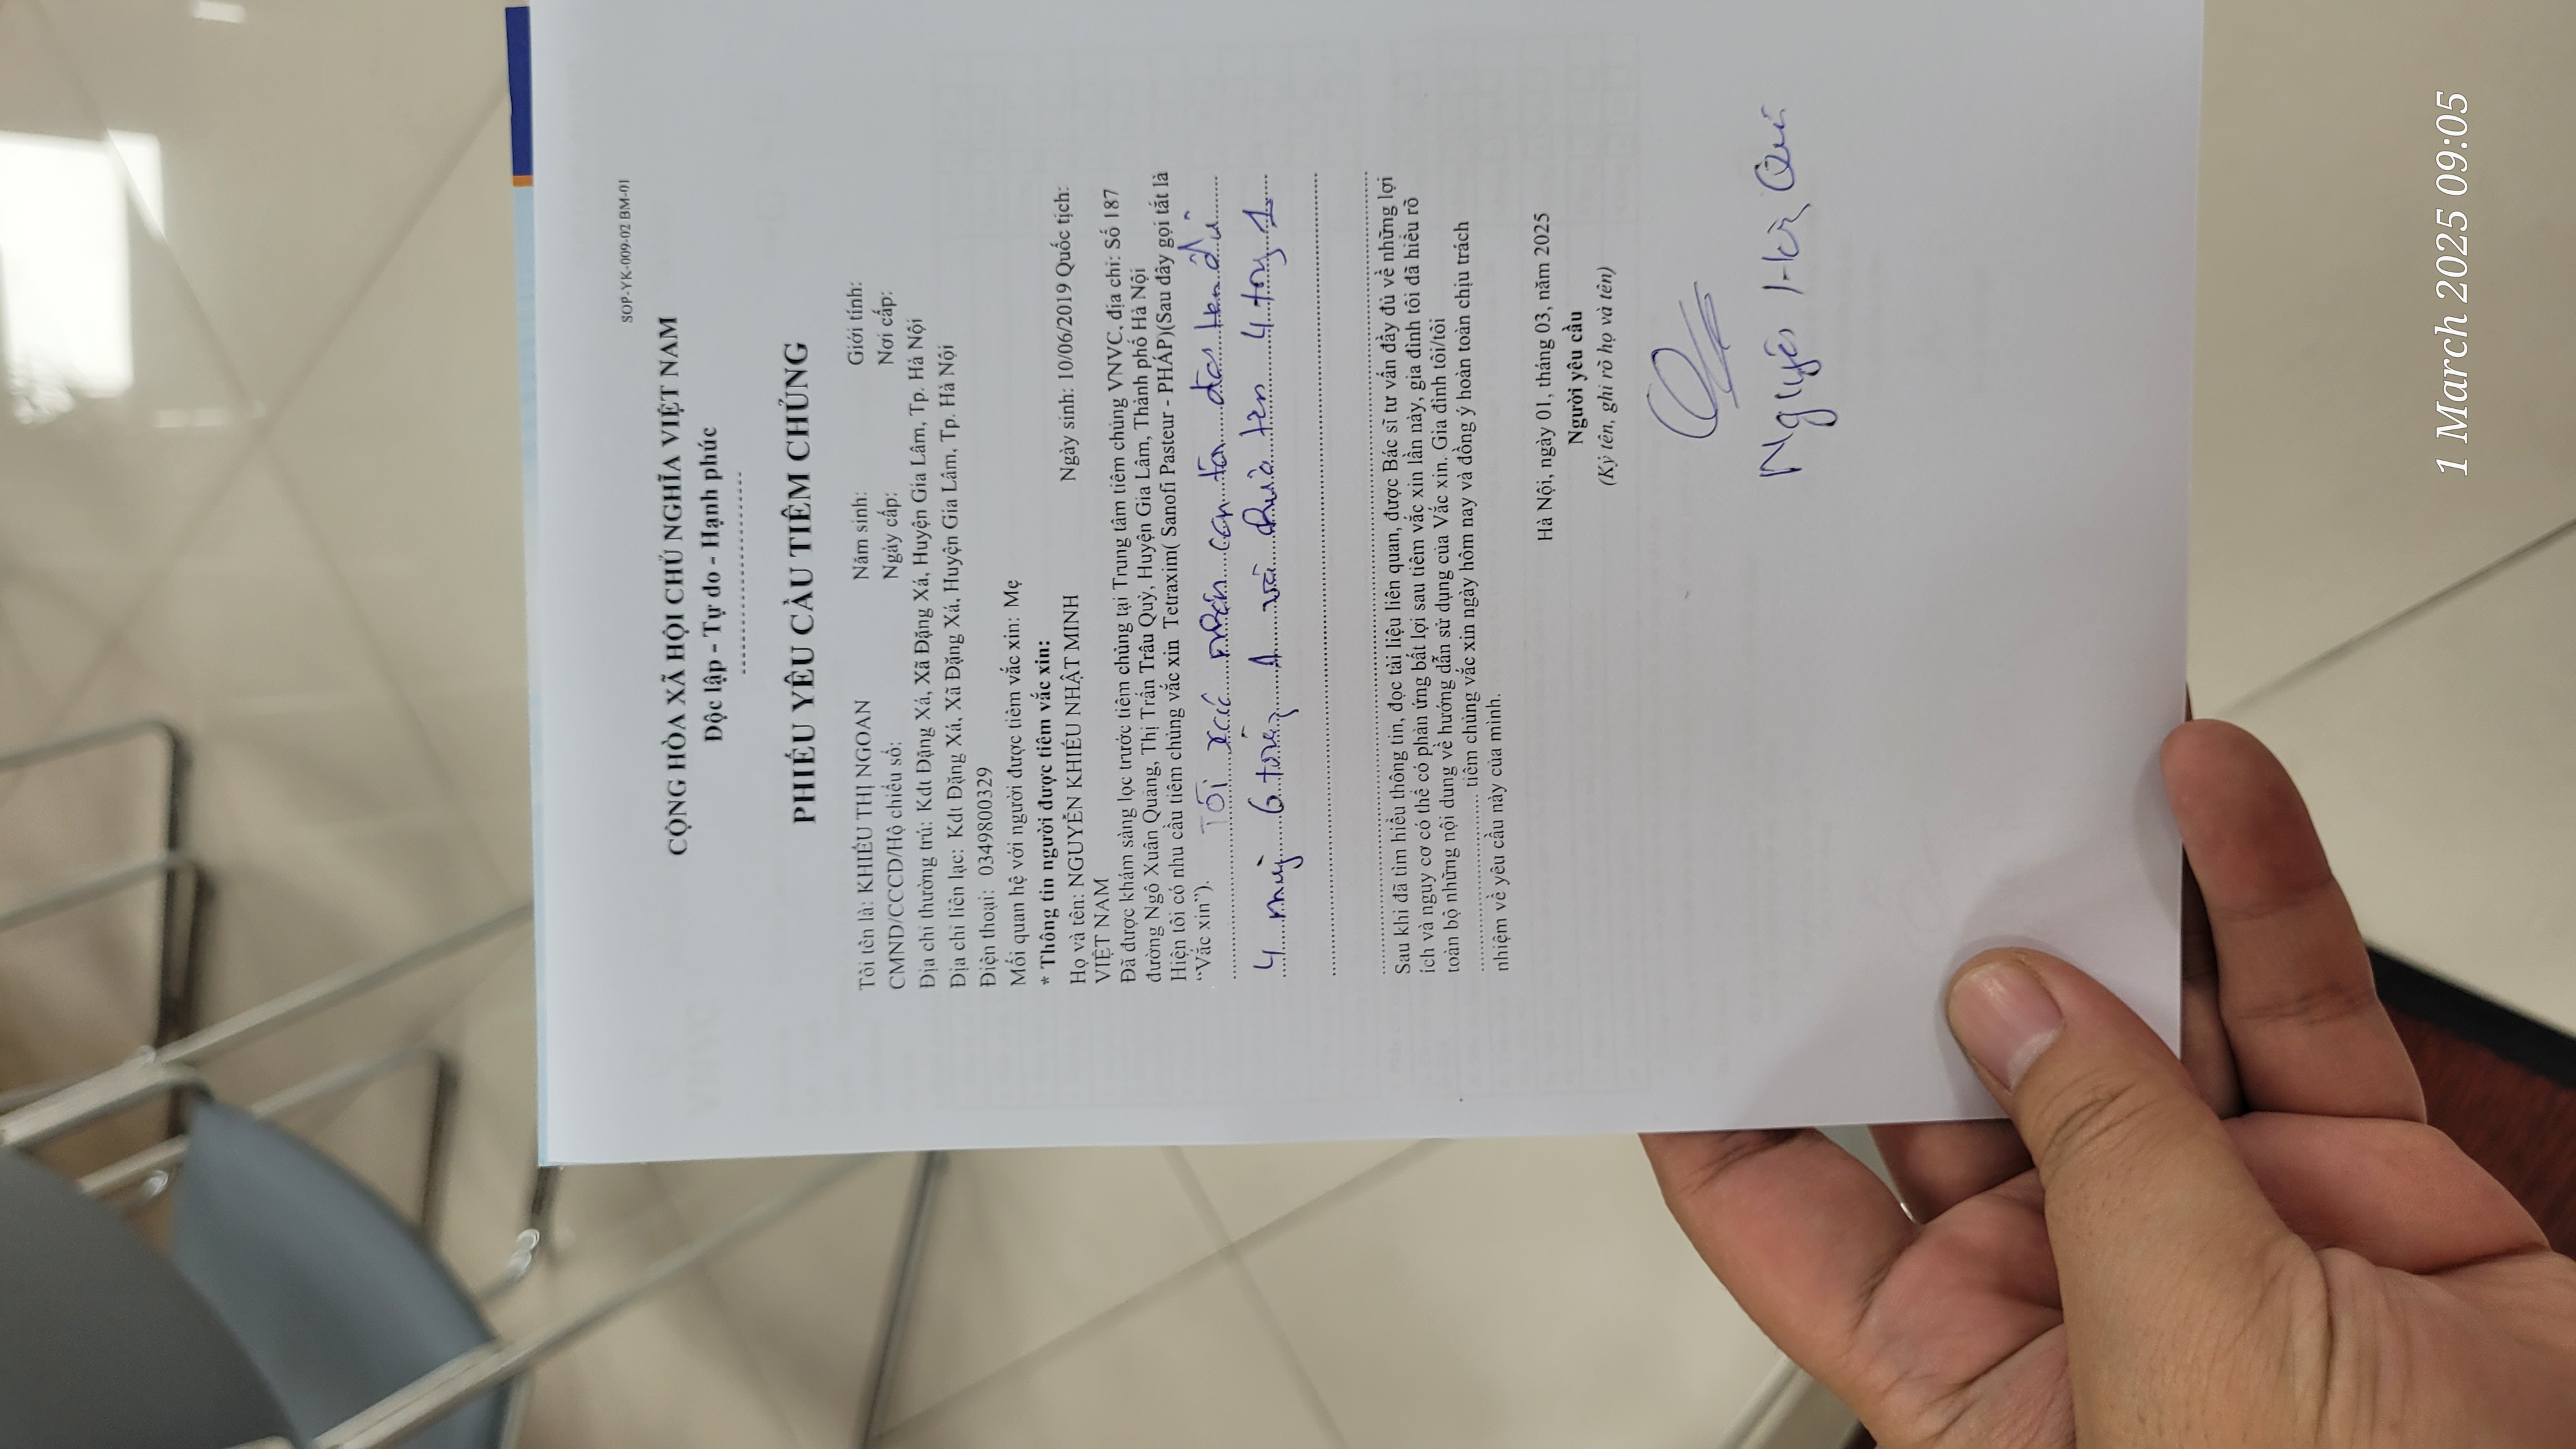 SOP-YK-009-02 BM-01
CỘNG HÒA XÃ HỘI CHỦ NGHĨA VIỆT NAM
Độc lập - Tự do - Hạnh phúc
-------------------------
PHIẾU YÊU CẦU TIÊM CHỦNG
Tôi tên là: KHIẾU THỊ NGOAN Năm sinh: Giới tính:
CMND/CCCD/Hộ chiếu số: Ngày cấp: Nơi cấp:
Địa chỉ thường trú: Kdt Đặng Xá, Xã Đặng Xá, Huyện Gia Lâm, Tp. Hà Nội
Địa chỉ liên lạc: Kdt Đặng Xá, Xã Đặng Xá, Huyện Gia Lâm, Tp. Hà Nội
Điện thoại: 0349800329
Mối quan hệ với người được tiêm vắc xin: Mẹ
* Thông tin người được tiêm vắc xin:
Họ và tên: NGUYỄN KHIẾU NHẬT MINH Ngày sinh: 10/06/2019 Quốc tịch:
VIỆT NAM
Đã được khám sàng lọc trước tiêm chủng tại Trung tâm tiêm chủng VNVC, địa chỉ: Số 187
đường Ngô Xuân Quảng, Thị Trấn Trâu Quỳ, Huyện Gia Lâm, Thành phố Hà Nội
Hiện tôi có nhu cầu tiêm chủng vắc xin Tetraxim( Sanofi Pasteur - PHÁP)(Sau đây gọi tắt là
“Vắc xin”). Tôi xác nhận con tôi đã tiêm đủ
4 mũi 6 trong 1 và chưa tiêm 4 trong 1
Sau khi đã tìm hiểu thông tin, đọc tài liệu liên quan, được Bác sĩ tư vấn đầy đủ về những lợi
ích và nguy cơ có thể có phản ứng bất lợi sau tiêm vắc xin lần này, gia đình tôi đã hiểu rõ
toàn bộ những nội dung về hướng dẫn sử dụng của Vắc xin. Gia đình tôi/tôi
................................ tiêm chủng vắc xin ngày hôm nay và đồng ý hoàn toàn chịu trách
nhiệm về yêu cầu này của mình.
Hà Nội, ngày 01, tháng 03, năm 2025
Người yêu cầu
(Ký tên, ghi rõ họ và tên)
Nguyễn
1 March 2025 09:05